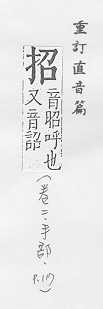 重訂直音篇
招
音昭呼也
又音韶
(卷二·手部·
P.17)